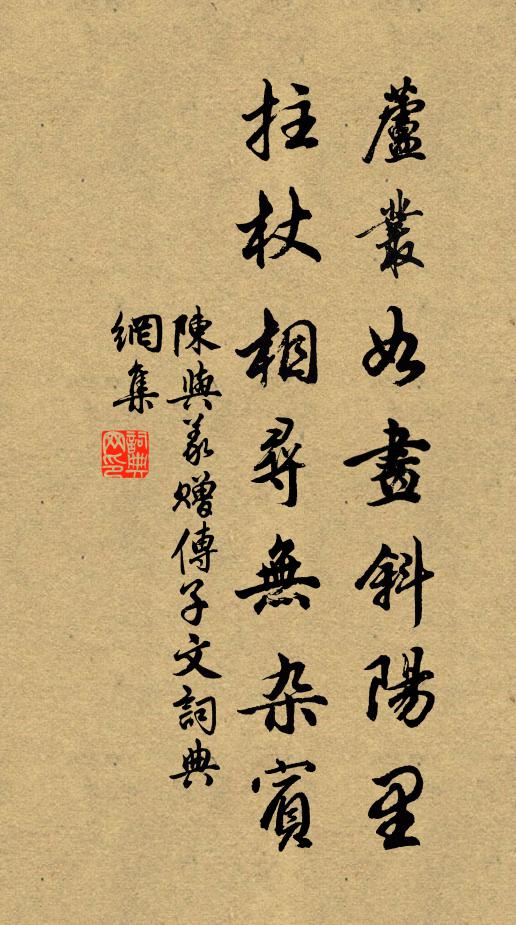 蘆叢如畫斜陽里
拄杖相尋無杂賓
陳與義贈傅子文詞典
網集
詞典網印